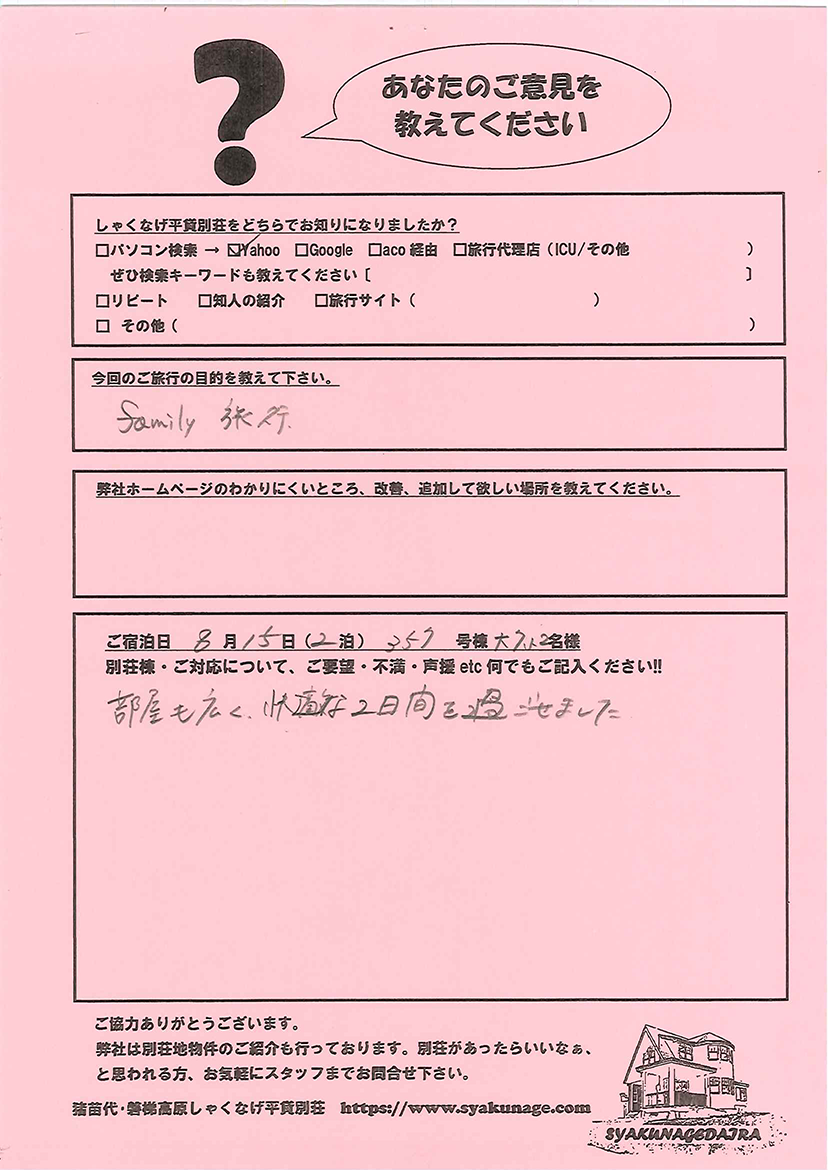 ?
あなたのご意見を
教えてください
しゃくなげ平貸別荘をどちらでお知りになりましたか？
□パソコン検索 → ☑Yahoo □Google □aco 経由 □旅行代理店（ICU/その他 ）
ぜひ検索キーワードも教えてください［ ］
□リピート □知人の紹介 □旅行サイト（ ）
□ その他（ ）
今回のご旅行の目的を教えて下さい。
family 旅行.
弊社ホームページのわかりにくいところ、改善、追加して欲しい場所を教えてください。
ご宿泊日 8 月 15 日（2 泊） 357 号棟 大 2名様
別荘棟・ご対応について、ご要望・不満・声援 etc 何でもご記入ください!!
部屋も広く、快適な2日間を過ごせました
ご協力ありがとうございます。
弊社は別荘地物件のご紹介も行っております。別荘があったらいいなぁ、
と思われる方、お気軽にスタッフまでお問合せ下さい。
猪苗代・磐梯高原しゃくなげ平貸別荘 https://www.syakunage.com
SYAKUNAGEDAIRA